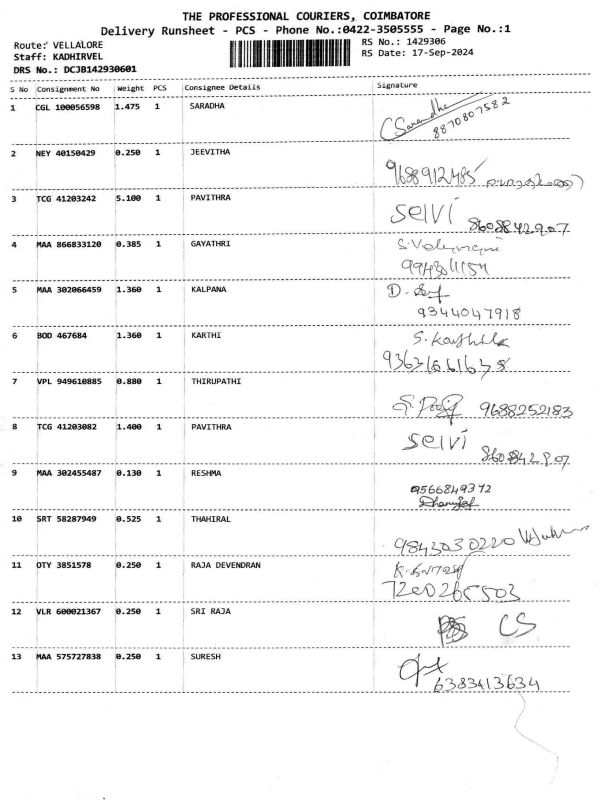 THE PROFESSIONAL COURIERS, COIMBATORE
Delivery Runsheet - PCS - Phone No.:0422-3505555 - Page No.:1
Route: VELLALORE RS No.: 1429306
Staff: KADHIRVEL RS Date: 17-Sep-2024
DRS No.: DCJB142930601
S No Consignment No Weight PCS Consignee Details Signature
1 CGL 100056598 1.475 1 SARADHA CSaradha
8870807582
2 NEY 40150429 0.250 1 JEEVITHA
9688912485
3 TCG 41203242 5.100 1 PAVITHRA selvi
8608842907
4 MAA 866833120 0.385 1 GAYATHRI
5 MAA 302066459 1.360 1 KALPANA D.
9344047918
6 BOD 467684 1.360 1 KARTHI S.
7 VPL 949610885 0.880 1 THIRUPATHI
9688252183
8 TCG 41203082 1.400 1 PAVITHRA selvi
9 MAA 302455487 0.130 1 RESHMA
9566849372
10 SRT 58287949 0.525 1 THAHIRAL
9843030220
11 OTY 3851578 0.250 1 RAJA DEVENDRAN
7200265503
12 VLR 600021367 0.250 1 SRI RAJA CS
13 MAA 575727838 0.250 1 SURESH
6383413634